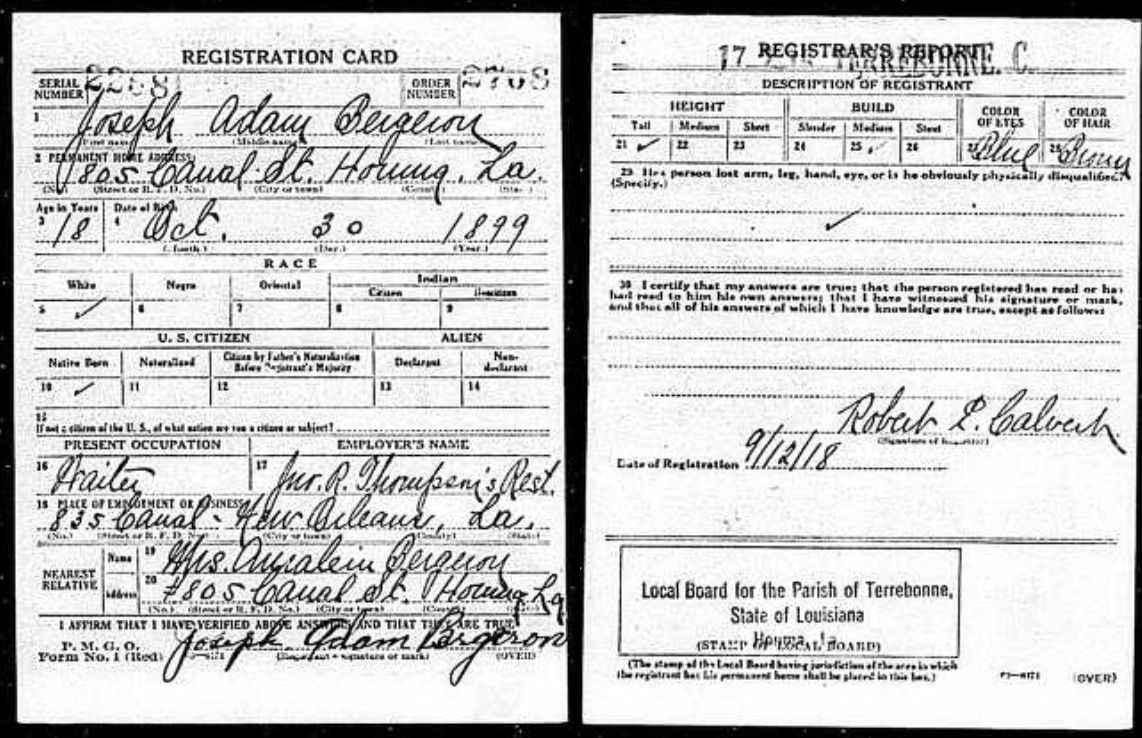 REGISTRATION CARD
SERIAL NUMBER 2268 ORDER NUMBER 2768
1 Joseph Adam Bergeron
(First name) (Middle name) (Last name)
2 PERMANENT HOME ADDRESS:
805 Canal St. Houma, La.
(No.) (Street or R. F. D. No.) (City or town) (County) (State)
Age in Years Date of Birth
3 18 4 Oct. 30 1899
(Month.) (Day.) (Year.)
RACE
White Negro Oriental Indian
Citizen Noncitizen
5 ✓ 6 7 8 9
U. S. CITIZEN ALIEN
Native Born Naturalized Citizen by Father's Naturalization Before Registrant's Majority Declarant Non-declarant
10 ✓ 11 12 13 14
15
If not a citizen of the U. S., of what nation are you a citizen or subject?
PRESENT OCCUPATION EMPLOYER'S NAME
16 Waiter 17 Jno. R. Thompson's Rest.
18 PLACE OF EMPLOYMENT OR BUSINESS:
835 Canal - New Orleans, La.
(No.) (Street or R. F. D. No.) (City or town) (County) (State)
NEAREST RELATIVE
Name 19 Mrs. Bergeron
Address 20 805 Canal St. Houma La
(No.) (Street or R. F. D. No.) (City or town) (County) (State)
I AFFIRM THAT I HAVE VERIFIED ABOVE ANSWERS AND THAT THEY ARE TRUE
P. M. G. O.
Form No. 1 (Red) Joseph Adam Bergeron
(Registrant's signature or mark) (OVER)
17 REGISTRAR'S REPORT TERREBONNE. C.
DESCRIPTION OF REGISTRANT
HEIGHT BUILD COLOR OF EYES COLOR OF HAIR
Tall Medium Short Slender Medium Stout
21 ✓ 22 23 24 25 ✓ 26 27 Blue 28 Brown
29 Has person lost arm, leg, hand, eye, or is he obviously physically disqualified?
(Specify.)
✓
30 I certify that my answers are true; that the person registered has read or has
had read to him his own answers; that I have witnessed his signature or mark,
and that all of his answers of which I have knowledge are true, except as follows:
Robert L. Calvert
(Signature of Registrar)
Date of Registration 9/12/18
Local Board for the Parish of Terrebonne,
State of Louisiana
Houma, La.
(STAMP OF LOCAL BOARD)
(The stamp of the Local Board having jurisdiction of the area in which
the registrant has his permanent home shall be placed in this box.)
(OVER)